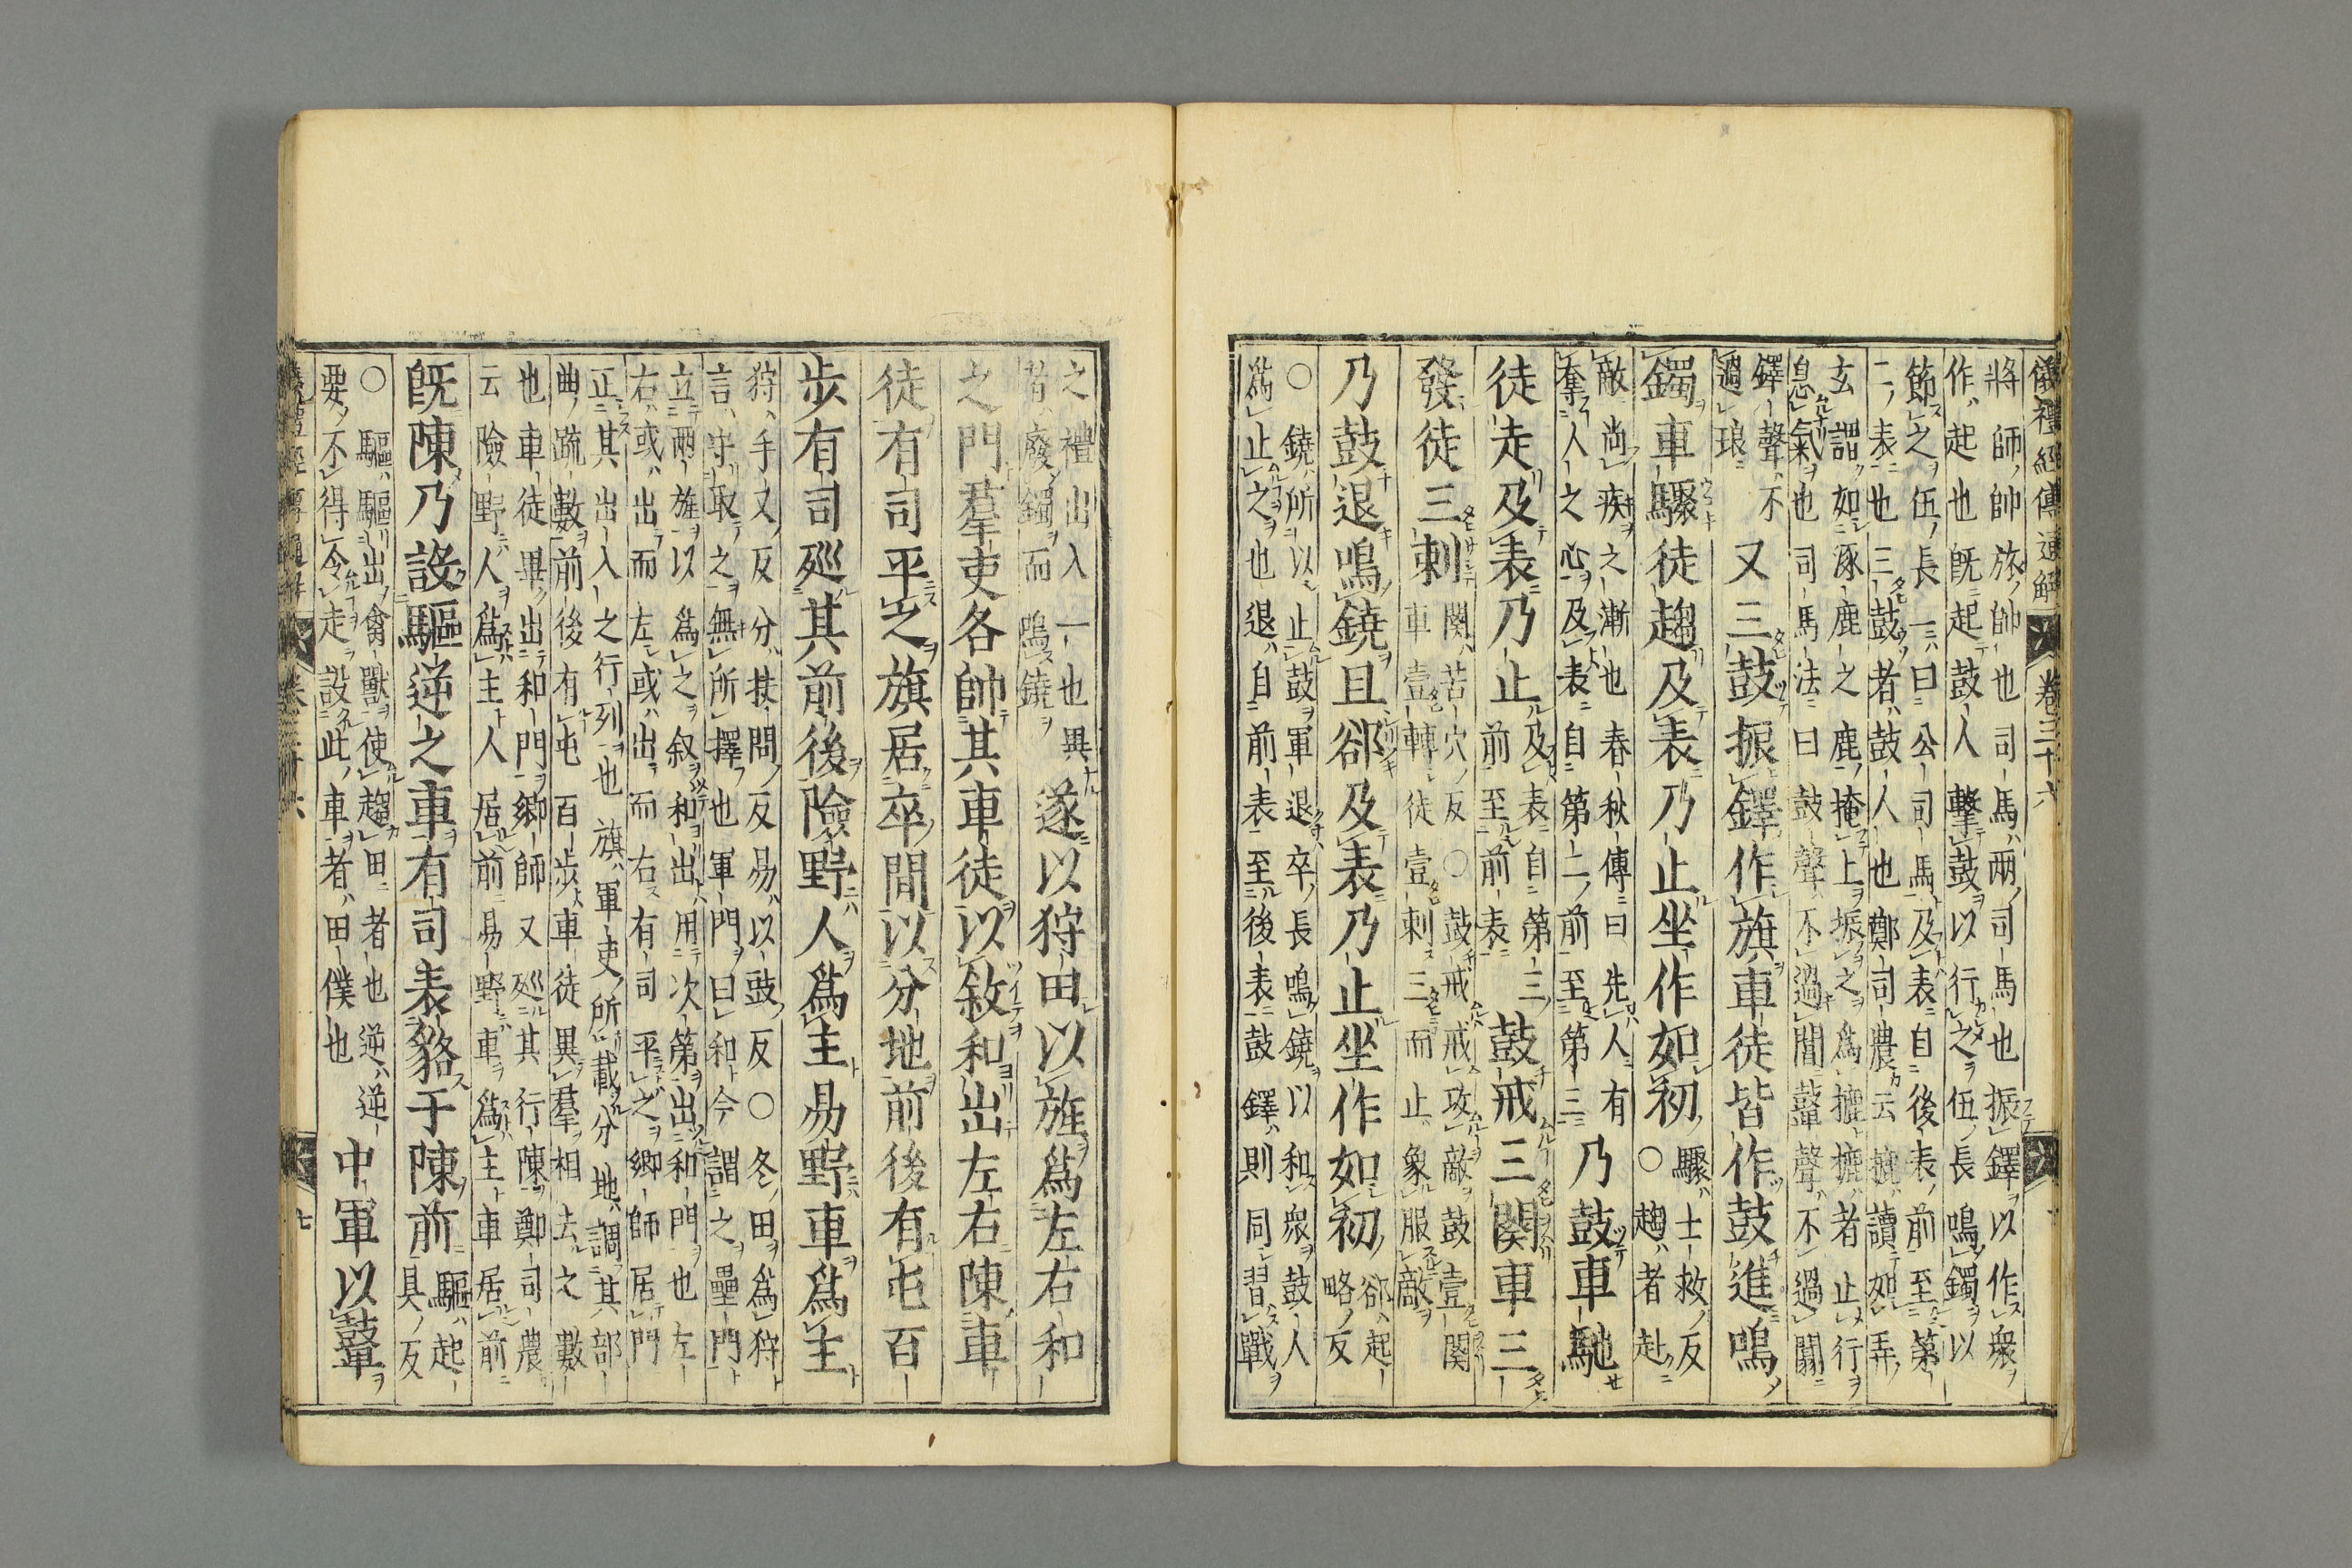 儀禮經傳通解 卷三十六
將師帥旅帥也司馬兩司馬也振鐸以作衆
作起也既起鼓人擊鼓以行之伍長鳴鐲以
節之伍長一曰公司馬及表自後表前至第
二表也三鼓者鼓人也鄭司農云摝讀如弄
玄謂如涿鹿之鹿掩上振之爲摝摝者止行
息氣也司馬法曰鼓聲不過閶鼙聲不過闒
鐸聲不
過琅
又三鼓振鐸作旗車徒皆作鼓進鳴
鐲車驟徒趨及表乃止坐作如初
驟士救反
○趨者赴
敵尚疾之漸也春秋傳曰先人有
奪人之心及表自第二前至第三
乃鼓車馳
徒走及表乃止
及表自第三
前至前表
鼓戒三闋車三
發徒三刺
闋苦穴反○鼓戒戒攻敵鼓壹闋
車壹轉徒壹刺三而止象服敵
乃鼓退鳴鐃且郤及表乃止坐作如初
郤起
略反
○鐃所以止鼓軍退卒長鳴鐃以和衆鼓人
爲止之也退自前表至後表鼓鐸則同習戰
之禮出入一也異
者廢鐲而鳴鐃
遂以狩田以旌爲左右和
之門羣吏各帥其車徒以敘和出左右陳車
徒有司平之旗居卒間以分地前後有屯百
步有司巡其前後險野人爲主易野車爲主
狩手又反分扶問反易以豉反○冬田爲狩
言守取之無所擇也軍門曰和今謂之壘門
立兩旌以爲之叙和出用次第出和門也左
右或出而左或出而右有司平之鄉師居門
正其出入之行列也旗軍吏所載分地調其部
曲疏數前後有屯百步車徒異羣相去之數
也車徒畢出和門鄉師又巡其行陳鄭司農
云險野人爲主人居前易野車爲主車居前
既陳乃設驅逆之車有司表貉于陳前
驅起
具反
○驅驅出禽獸使趨田者也逆逆
要不得令走設此車者田僕也
中軍以鼙
七